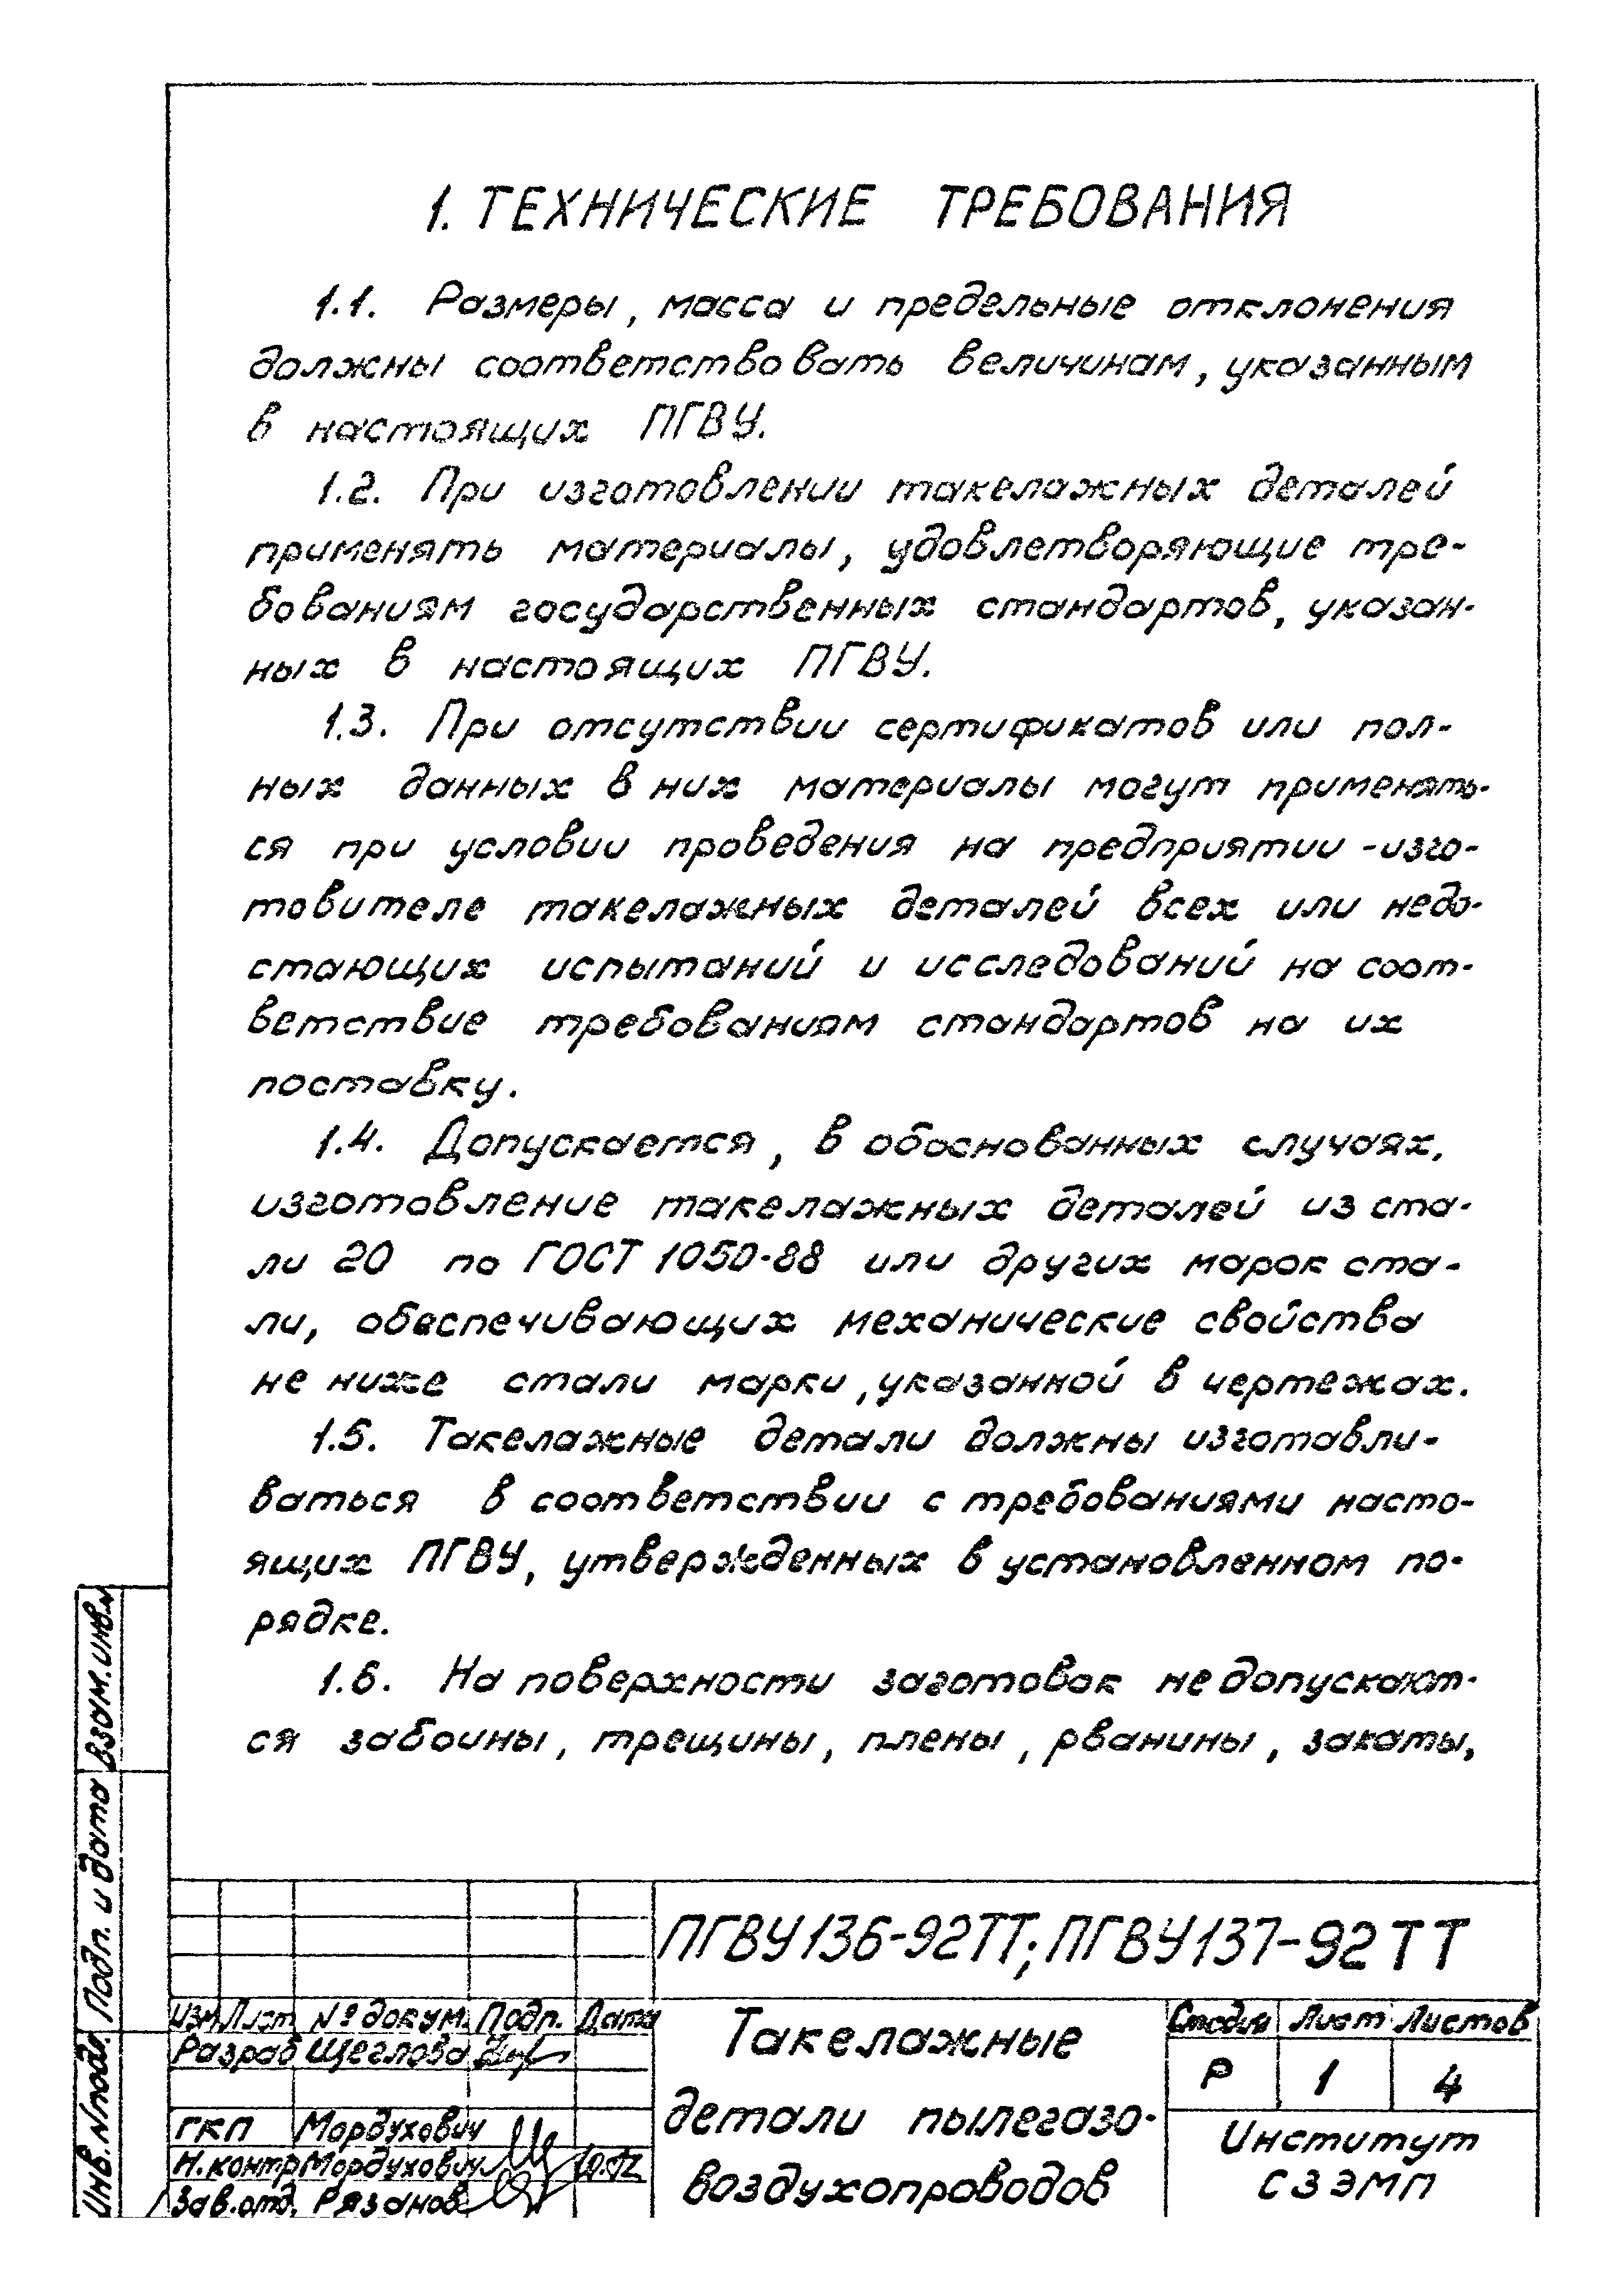 1. ТЕХНИЧЕСКИЕ ТРЕБОВАНИЯ
1.1. Размеры, масса и предельные отклонения
должны соответствовать величинам, указанным
в настоящих ПГВУ.
1.2. При изготовлении такелажных деталей
применять материалы, удовлетворяющие тре-
бованиям государственных стандартов, указан-
ных в настоящих ПГВУ.
1.3. При отсутствии сертификатов или пол-
ных данных в них материалы могут применять-
ся при условии проведения на предприятии-изго-
товителе такелажных деталей всех или недо-
стающих испытаний и исследований на соот-
ветствие требованиям стандартов на их
поставку.
1.4. Допускается, в обоснованных случаях,
изготовление такелажных деталей из ста-
ли 20 по ГОСТ 1050-88 или других марок ста-
ли, обеспечивающих механические свойства
не ниже стали марки, указанной в чертежах.
1.5. Такелажные детали должны изготавли-
ваться в соответствии с требованиями насто-
ящих ПГВУ, утвержденных в установленном по-
рядке.
1.6. На поверхности заготовок не допускают-
ся забоины, трещины, плены, рванины, закаты,
Взам. инв. N
Подп. и дата
Инв. N подл.
ПГВУ 136-92ТТ; ПГВУ 137-92ТТ
Изм Лист № докум. Подп. Дата
Разраб Щеглова
ГКП Мордухович
Н.контр Мордухович
Зав.отд. Рязанов
Такелажные
детали пылегазо-
воздухопроводов
Стадия Лист Листов
Р 1 4
Институт
СЗЭМП